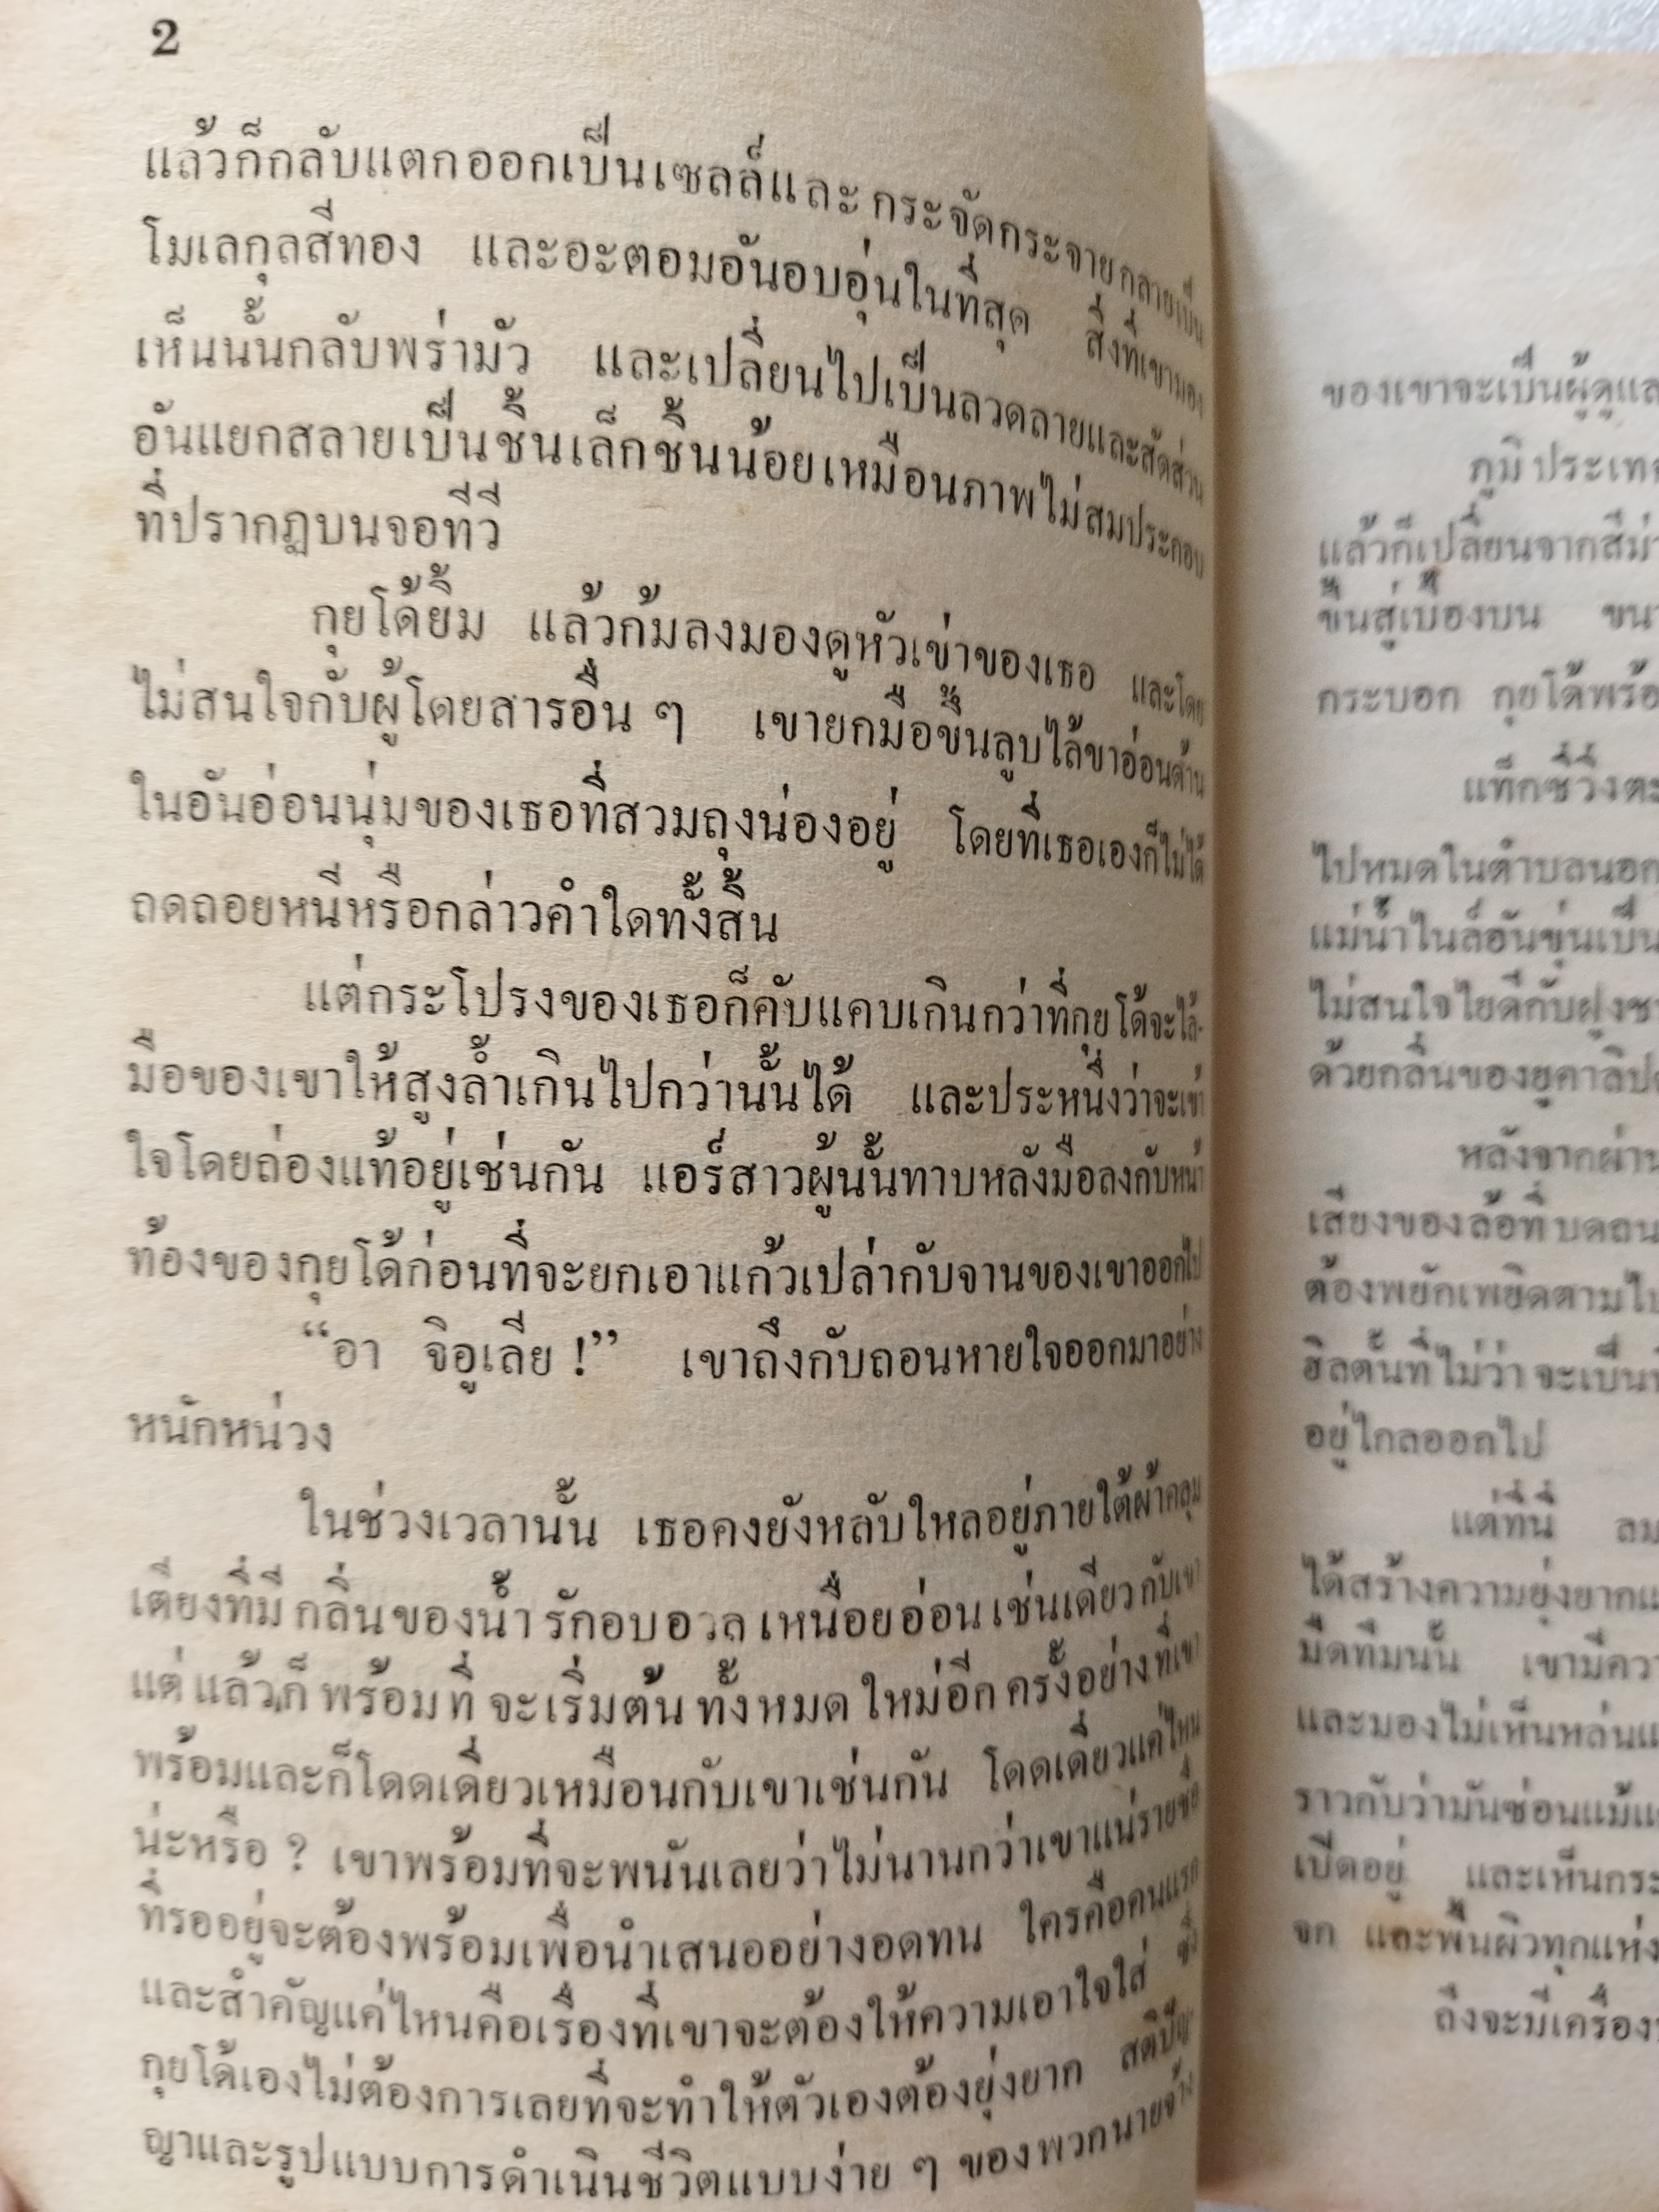 2
แล้วก็กลับแตกออกเป็นเซลล์และกระจัดกระจายกลายเป็น
โมเลกุลสีทอง และอะตอมอันอบอุ่นในที่สุด สิ่งที่เขามอง
เห็นนั้นกลับพร่ามัว และเปลี่ยนไปเป็นลวดลายและสัดส่วน
อันแยกสลายเป็นชิ้นเล็กชิ้นน้อยเหมือนภาพไม่สมประกอบ
ที่ปรากฏบนจอทีวี
กุยโด้ยิ้ม แล้วก้มลงมองดูหัวเข่าของเธอ และโดย
ไม่สนใจกับผู้โดยสารอื่น ๆ เขายกมือขึ้นลูบไล้ขาอ่อนด้าน
ในอันอ่อนนุ่มของเธอที่สวมถุงน่องอยู่ โดยที่เธอเองก็ไม่ได้
ถดถอยหนีหรือกล่าวคำใดทั้งสิ้น
แต่กระโปรงของเธอก็คับแคบเกินกว่าที่กุยโด้จะไล้
มือของเขาให้สูงล้ำเกินไปกว่านั้นได้ และประหนึ่งว่าจะเข้า
ใจโดยถ่องแท้อยู่เช่นกัน แอร์สาวผู้นั้นทาบหลังมือลงกับหน้า
ท้องของกุยโด้ก่อนที่จะยกเอาแก้วเปล่ากับจานของเขาออกไป
“อา จิอูเลีย !” เขาถึงกับถอนหายใจออกมาอย่าง
หนักหน่วง
ในช่วงเวลานั้น เธอคงยังหลับใหลอยู่ภายใต้ผ้าคลุม
เตียงที่มีกลิ่นของน้ำรักอบอวล เหนื่อยอ่อนเช่นเดียวกับเขา
แต่แล้วก็พร้อมที่จะเริ่มต้นทั้งหมดใหม่อีกครั้งอย่างที่เขา
พร้อมและก็โดดเดี่ยวเหมือนกับเขาเช่นกัน โดดเดี่ยวแค่ไหน
น่ะหรือ ? เขาพร้อมที่จะพนันเลยว่าไม่นานกว่าเขาแน่รายชื่อ
ที่รออยู่จะต้องพร้อมเพื่อนำเสนออย่างอดทน ใครคือคนแรก
และสำคัญแค่ไหนคือเรื่องที่เขาจะต้องให้ความเอาใจใส่ ซึ่ง
กุยโด้เองไม่ต้องการเลยที่จะทำให้ตัวเองต้องยุ่งยาก สติปัญ
ญาและรูปแบบการดำเนินชีวิตแบบง่าย ๆ ของพวกนายจ้าง
ของเขาจะเป็นผู้ดูแล
ภูมิประเทศ
แล้วก็เปลี่ยนจากสีม่
ขึ้นสู่เบื้องบน
กระบอก กุยโด้พร้อ
แท็กซี่วิ่งตะ
ไปหมดในตำบลนอก
แม่น้ำไนล์อันขุ่นเป็น
ไม่สนใจไยดีกับฝูงชา
ด้วยกลิ่นของยูคาลิป
หลังจากผ่าน
เสียงของล้อที่บดถน
ต้องพยักเพยิดตามไป
ฮิลตั้นที่ไม่ว่าจะเป็น
อยู่ไกลออกไป
แต่ที่นี่ ลม
ได้สร้างความยุ่งยากแ
มืดทึมนั้น เขามีควา
และมองไม่เห็นหล่นแ
ราวกับว่ามันซ่อนแม้แ
เปิดอยู่ และเห็นกระ
จก และพื้นผิวทุกแห่ง
ถึงจะมีเครื่อง